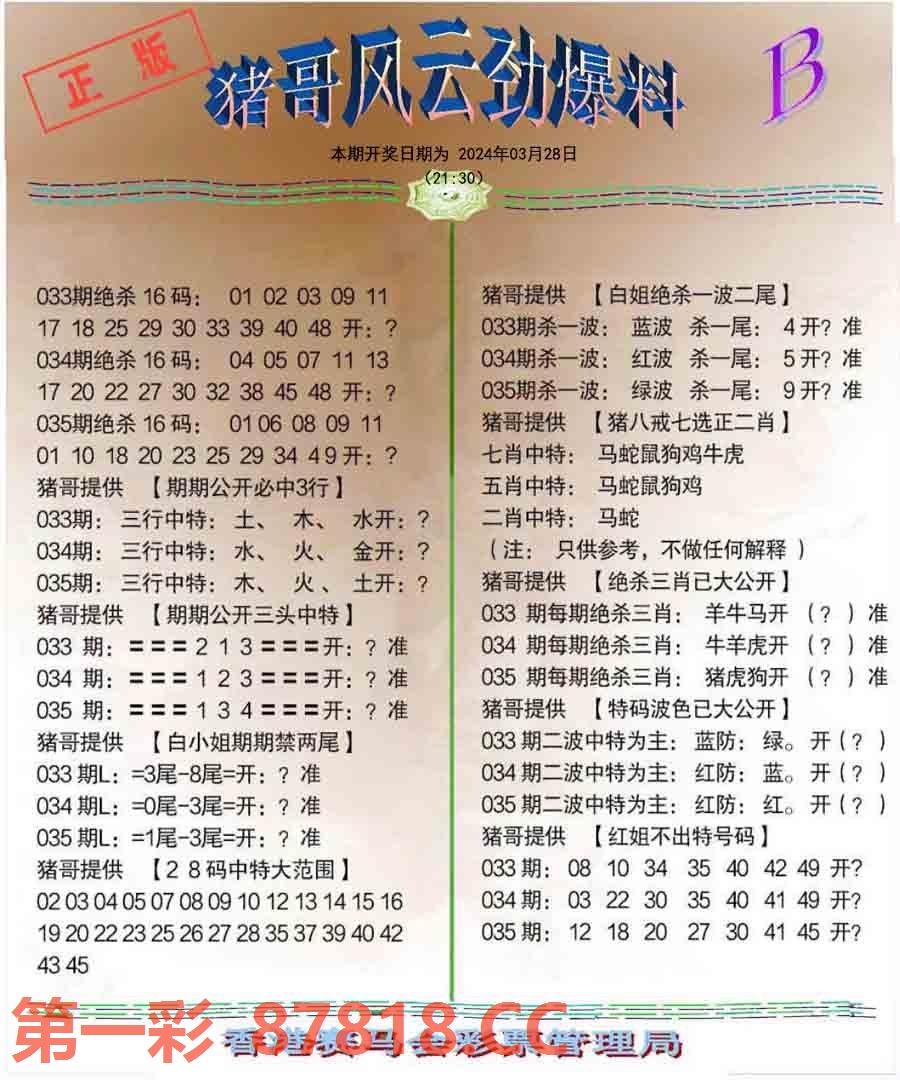 正版
猪哥风云劲爆料
B
本期开奖日期为 2024年03月28日
(21:30)
033期绝杀16码： 01 02 03 09 11
17 18 25 29 30 33 39 40 48 开：?
034期绝杀16码： 04 05 07 11 13
17 20 22 27 30 32 38 45 48 开：?
035期绝杀16码： 01 06 08 09 11
01 10 18 20 23 25 29 34 4 9 开：?
猪哥提供 【期期公开必中3行】
033期：三行中特：土、 木、 水开：?
034期：三行中特：水、 火、 金开：?
035期：三行中特：木、 火、 土开：?
猪哥提供 【期期公开三头中特】
033 期：＝＝＝2 1 3＝＝＝开：? 准
034 期：＝＝＝1 2 3＝＝＝开：? 准
035 期：＝＝＝1 3 4＝＝＝开：? 准
猪哥提供 【白小姐期期禁两尾】
033期L：=3尾-8尾=开：? 准
034期L：=0尾-3尾=开：? 准
035期L：=1尾-3尾=开：? 准
猪哥提供 【2 8码中特大范围】
02 03 04 05 07 08 09 10 12 13 14 15 16
19 20 22 23 25 26 27 28 35 37 39 40 42
43 45
猪哥提供 【白姐绝杀一波二尾】
033期杀一波： 蓝波 杀一尾： 4开? 准
034期杀一波： 红波 杀一尾： 5开? 准
035期杀一波： 绿波 杀一尾： 9开? 准
猪哥提供 【猪八戒七选正二肖】
七肖中特： 马蛇鼠狗鸡牛虎
五肖中特： 马蛇鼠狗鸡
二肖中特： 马蛇
（注： 只供参考，不做任何解释 ）
猪哥提供 【绝杀三肖已大公开】
033 期每期绝杀三肖： 羊牛马开 （? ）准
034 期每期绝杀三肖： 牛羊虎开 （? ）准
035 期每期绝杀三肖： 猪虎狗开 （? ）准
猪哥提供 【特码波色已大公开】
033期二波中特为主：蓝防：绿。开（? ）
034期二波中特为主：红防：蓝。开（? ）
035期二波中特为主：红防：红。开（? ）
猪哥提供 【红姐不出特号码】
033期： 08 10 34 35 40 42 49 开?
034期： 03 22 30 35 40 41 49 开?
035期： 12 18 20 27 30 41 45 开?
第一彩 87818.CC
香港赛马会彩票管理局